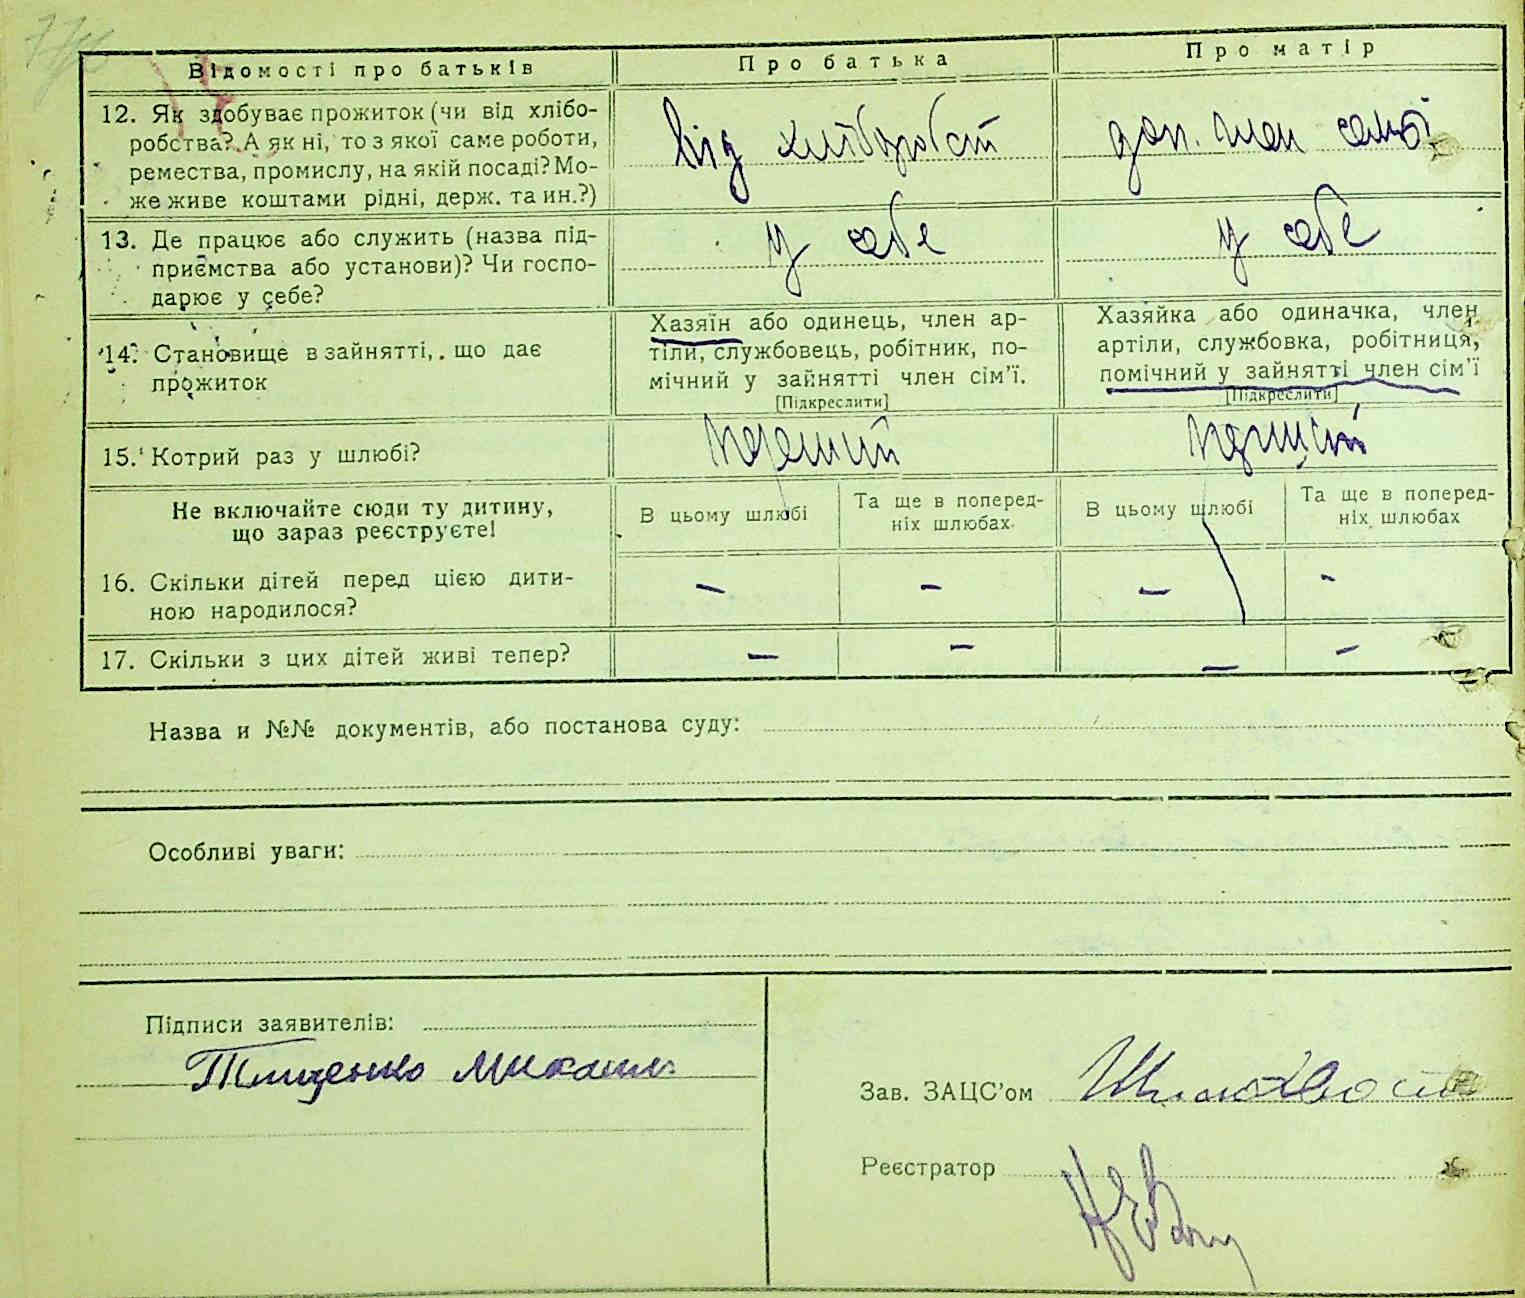 Відомості про батьків
Про батька
Про матір
12. Як здобуває прожиток (чи від хлібо-
робства? А як ні, то з якої саме роботи,
ремества, промислу, на якій посаді? Мо-
же живе коштами рідні, держ. та ин.?)
від хліборобст
доп. член сімї
13. Де працює або служить (назва під-
приємства або установи)? Чи госпо-
дарює у себе?
у себе
у себе
14. Становище в зайнятті, що дає
прожиток
Хазяїн або одинець, член ар-
тіли, службовець, робітник, по-
мічний у зайнятті член сім'ї.
[Підкреслити]
Хазяйка або одиначка, член
артіли, службовка, робітниця,
помічний у зайнятті член сім'ї
[Підкреслити]
15. Котрий раз у шлюбі?
перший
перший
Не включайте сюди ту дитину,
що зараз реєструєте!
В цьому шлюбі
Та ще в поперед-
ніх шлюбах
В цьому шлюбі
Та ще в поперед-
ніх шлюбах
16. Скільки дітей перед цією дити-
ною народилося?
— — — -
17. Скільки з цих дітей живі тепер?
— — — —
Назва и №№ документів, або постанова суду:
Особливі уваги:
Підписи заявителів:
Тищенко Михаил
Зав. ЗАЦС'ом
Реєстратор